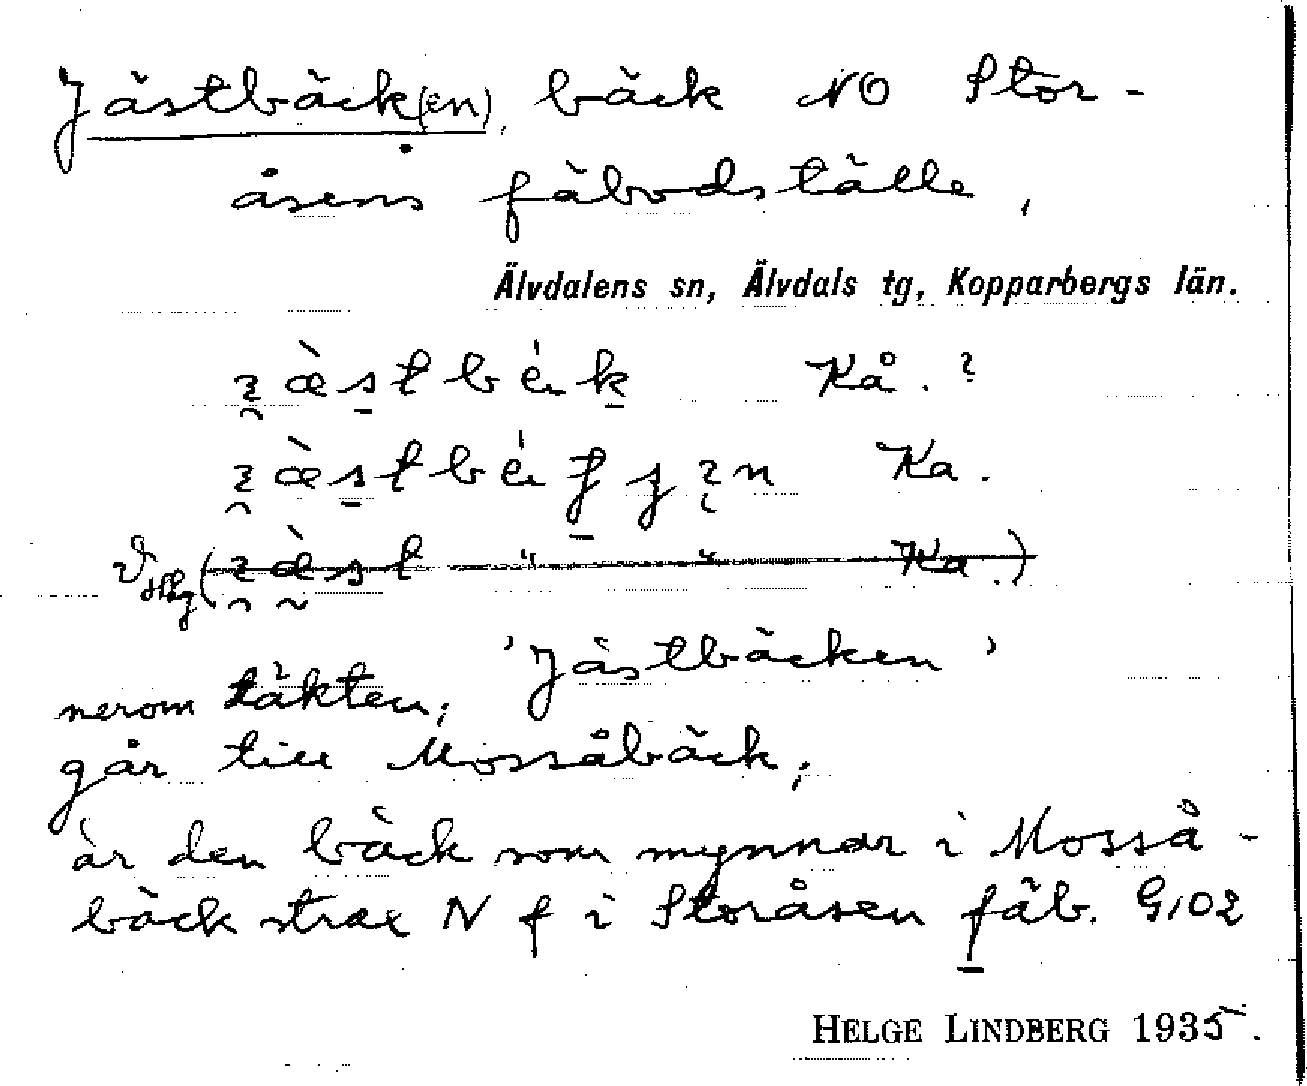 Jästbäck(en), bäck NO Stor-
åsens fäbodställe,
Älvdalens sn, Älvdals tg, Kopparbergs län.
Kå.?
Ka.
Ka.)
'Jästbäcken'
nerom täkten;
går till Mossåbäck;
är den bäck som mynnar i Masså-
bäck strax N f i Storåsen fäb. G102
HELGE LINDBERG 1935.